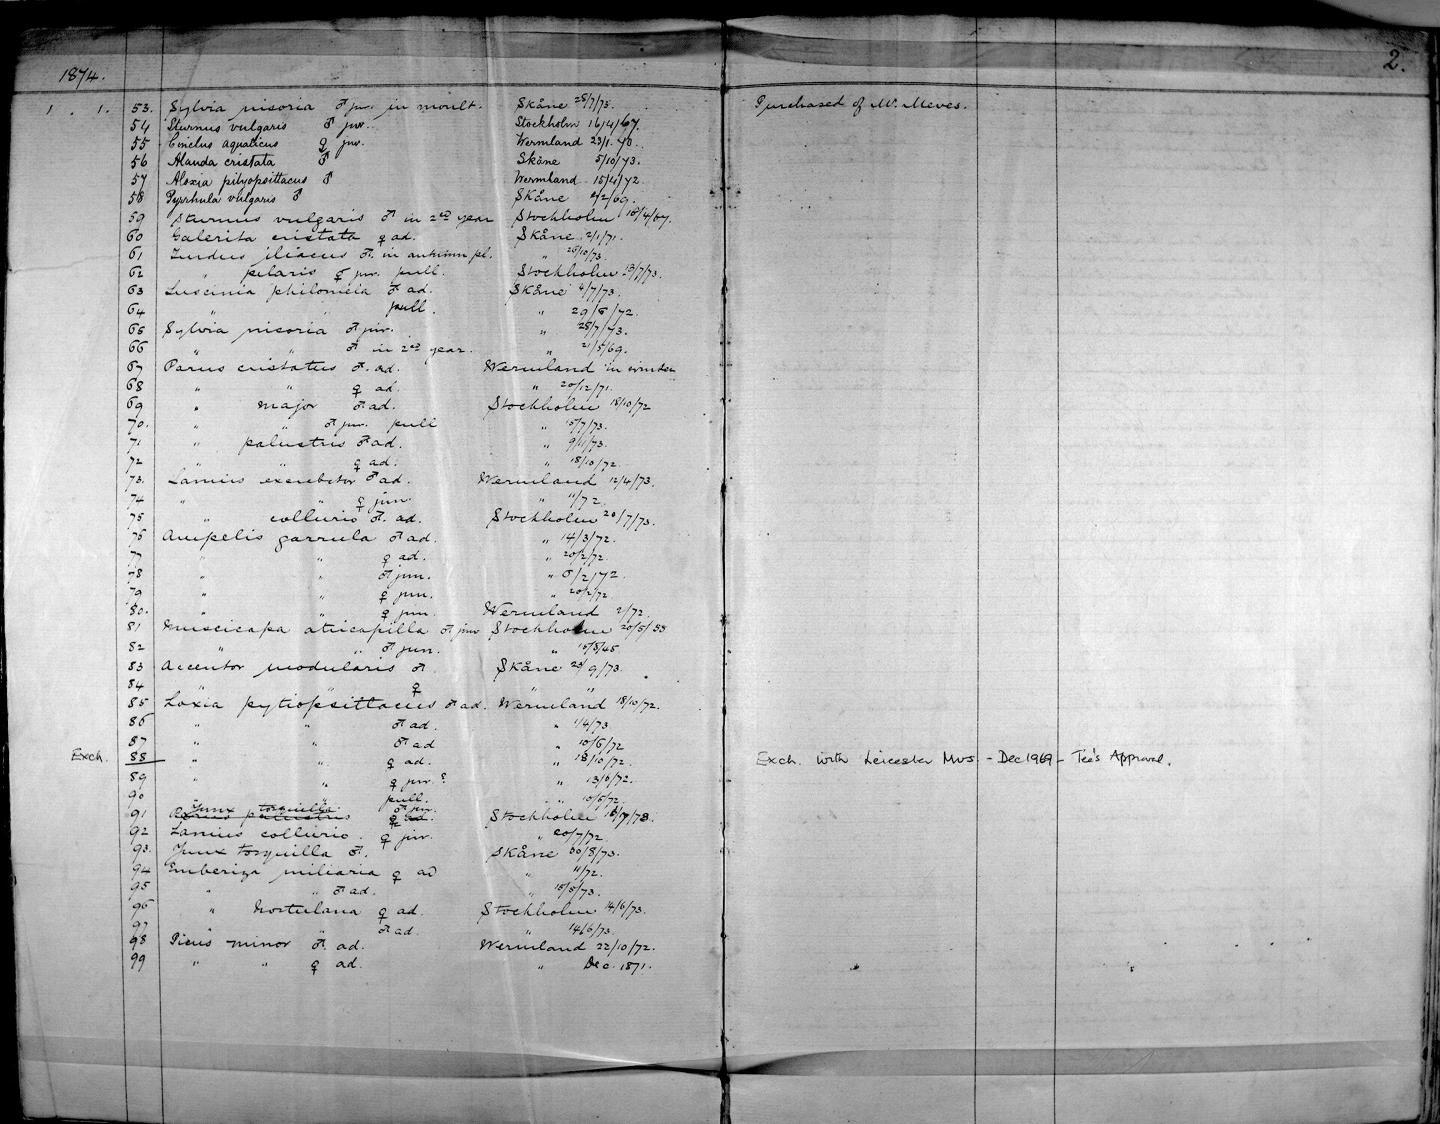 2.
1874.
1. 1. 53. Sylvia nisoria ♂ juv. in moult. Skåne 28/7/73. Purchased of Mr. Meves.
54 Sturnus vulgaris ♂ juv. Stockholm 16/4/67.
55 Cinclus aquaticus ♀ juv. Wermland 23/1.70.
56 Alauda cristata ♂ Skåne 5/10/73.
57 Aloxia pityopsittacus ♂ Wermland 15/4/72.
58 Pyrrhula vulgaris ♂ Skåne /2/69.
59 Sturnus vulgaris ♂ in 2nd year Stockholm 18/4/67.
60 Galerita cristata ♀ ad. Skåne 2/1/71.
61 Turdus iliacus ♂. in autumn pl. " 25/10/73.
62 " pilaris ♀ juv. pull. Stockholm 13/7/73.
63 Luscinia philomela ♂ ad. Skåne 4/7/73.
64 " " pull. " 29/6/72.
65 Sylvia nisoria ♂ juv. " 28/7/73.
66 " " ♂ in 2nd year. " 21/5/69.
67 Parus cristatus ♂. ad. Wermland in winter
68 " " ♀ ad. " 20/12/71.
69 " major ♂ ad. Stockholm 18/10/72
70. " " ♂ juv. pull " 15/7/73.
71 " palustris ♂ ad. " 9/11/73.
72 " " ♀ ad. " 18/10/72.
73. Lanius excubitor ♂ ad. Wermland 12/4/73.
74 " " ♀ juv. " 11/72.
75 " collurio ♂. ad. Stockholm 20/7/73.
76 Ampelis garrula ♂ ad. " 14/3/72.
77 " " ♀ ad. " 20/2/72.
78 " " ♂ juv. " 5/2/72.
79 " " ♀ juv. " 20/2/72
80. " " ♀ juv. Wermland 2/72.
81 Muscicapa atricapilla ♂ juv Stockholm 20/5/55
82 " " ♂ juv. " 15/5/45
83 Accentor modularis ♂. Skåne 23/9/73.
84 " " ♀ " "
85 Loxia pytiopsittacus ♂ ad. Wermland 18/10/72.
86 " " ♂ ad. " 1/4/73.
87 " " ♂ ad " 10/6/72
Exch. 88 " " ♀ ad. " 18/10/72. Exch. with Leicester Mus - Dec 1969 - Tee's Approval.
89 " " ♀ juv? " 13/6/72.
90 " " pull. " 10/5/72.
91 Junx torquilla ♂ juv. Parus palustris ♀ ad. Stockholm 16/7/73.
92 Lanius collurio. ♀ juv. " 20/7/72
93. Junx torquilla ♂. Skåne 30/8/73.
94 Emberiza miliaria ♀ ad " 11/72.
95 " " ♂ ad. " 15/5/73.
96 " hortulana ♀ ad. Stockholm 14/6/73.
97 " ♂ ad. " 14/6/73.
98 Picus minor ♂ ad. Wermland 22/10/72.
99 " " ♀ ad. " Dec. 1871.